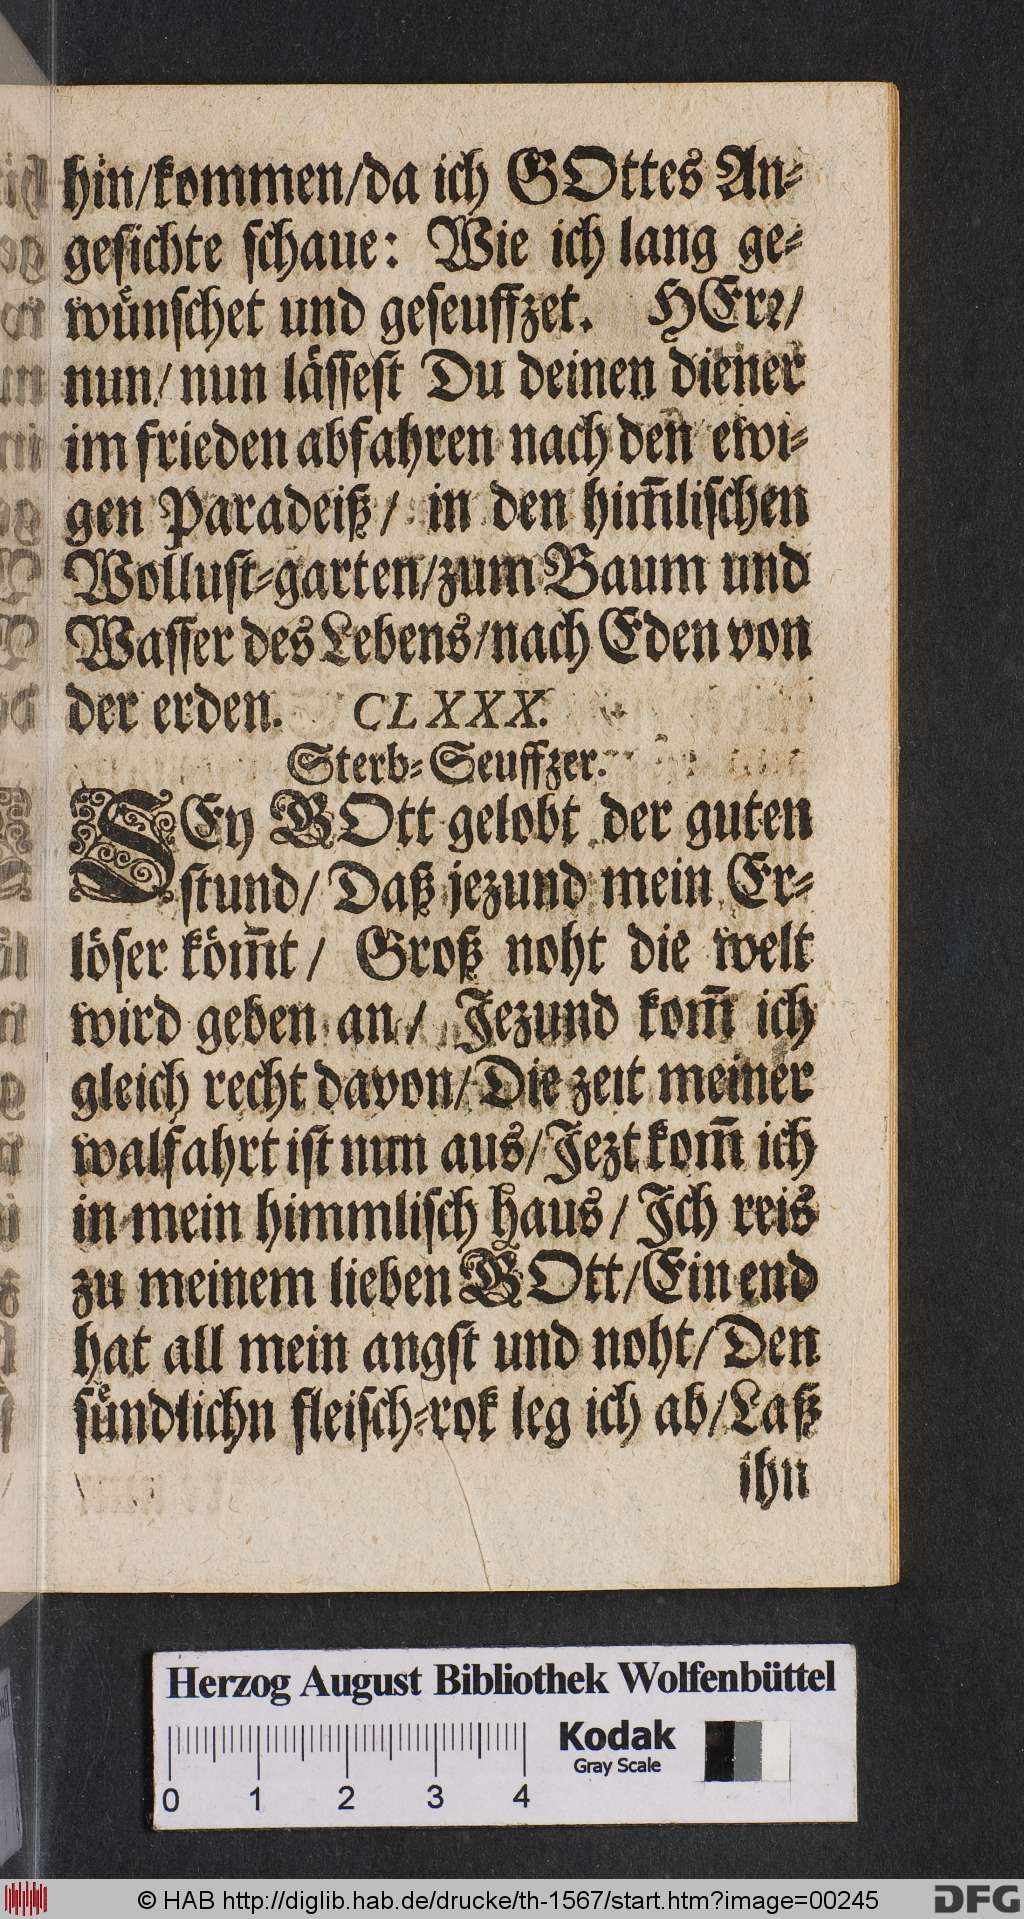 hin/kommen/da ich GOttes An-
gesichte schaue: Wie ich lang ge-
wünschet und geseuffzet. HErr/
nun/ nun lässest Du deinen diener
im frieden abfahren nach den ewi-
gen Paradeiß/ in den him̃lischen
Wollust-garten/zum Baum und
Wasser des Lebens/nach Eden von
der erden. CLXXX.
Sterb-Seuffzer.
SEy GOtt gelobt der guten
stund/ Daß jezund mein Er-
löser köm̃t/ Groß noht die welt
wird geben an/ Jezund kom̃ ich
gleich recht davon/Die zeit meiner
walfahrt ist nun aus/Jezt kom̃ ich
in mein himmlisch haus/Ich reis
zu meinem lieben GOtt/Ein end
hat all mein angst und noht/Den
sündlichn fleisch-rok leg ich ab/Laß
ihn
Herzog August Bibliothek Wolfenbüttel
Kodak
Gray Scale
0 1 2 3 4
© HAB http://diglib.hab.de/drucke/th-1567/start.htm?image=00245
DFG